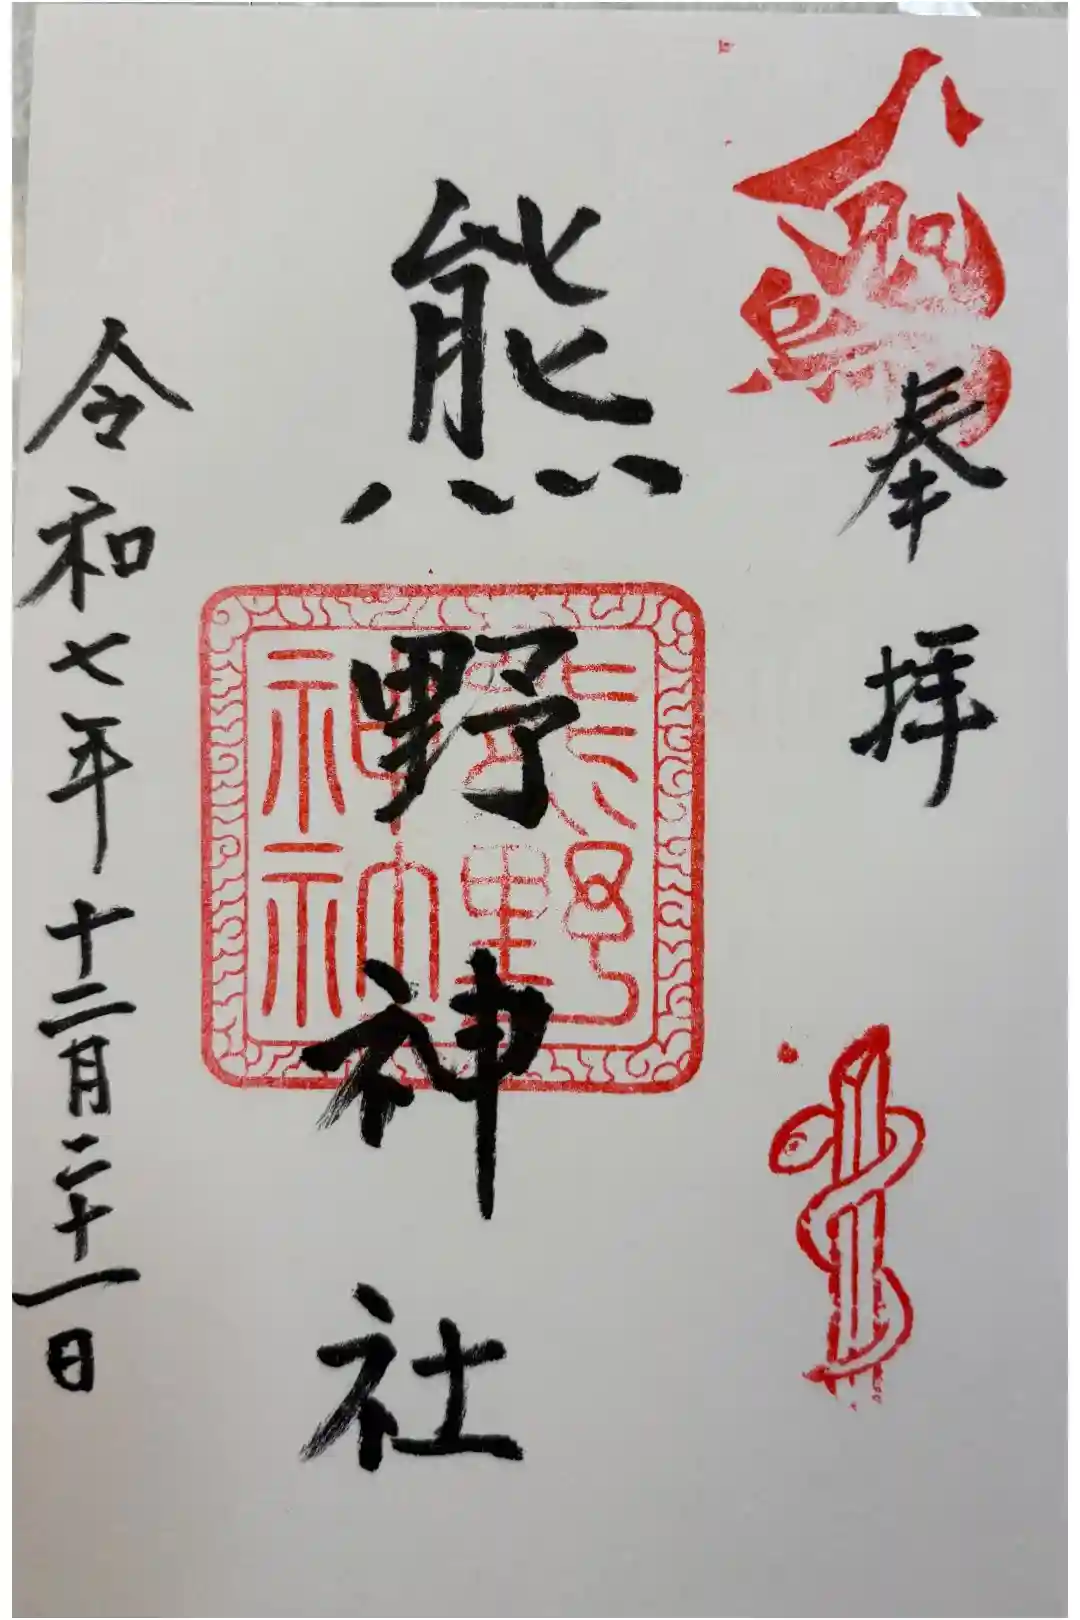 八咫烏
奉拝
熊野神社
熊野神社
令和七年十二月二十一日